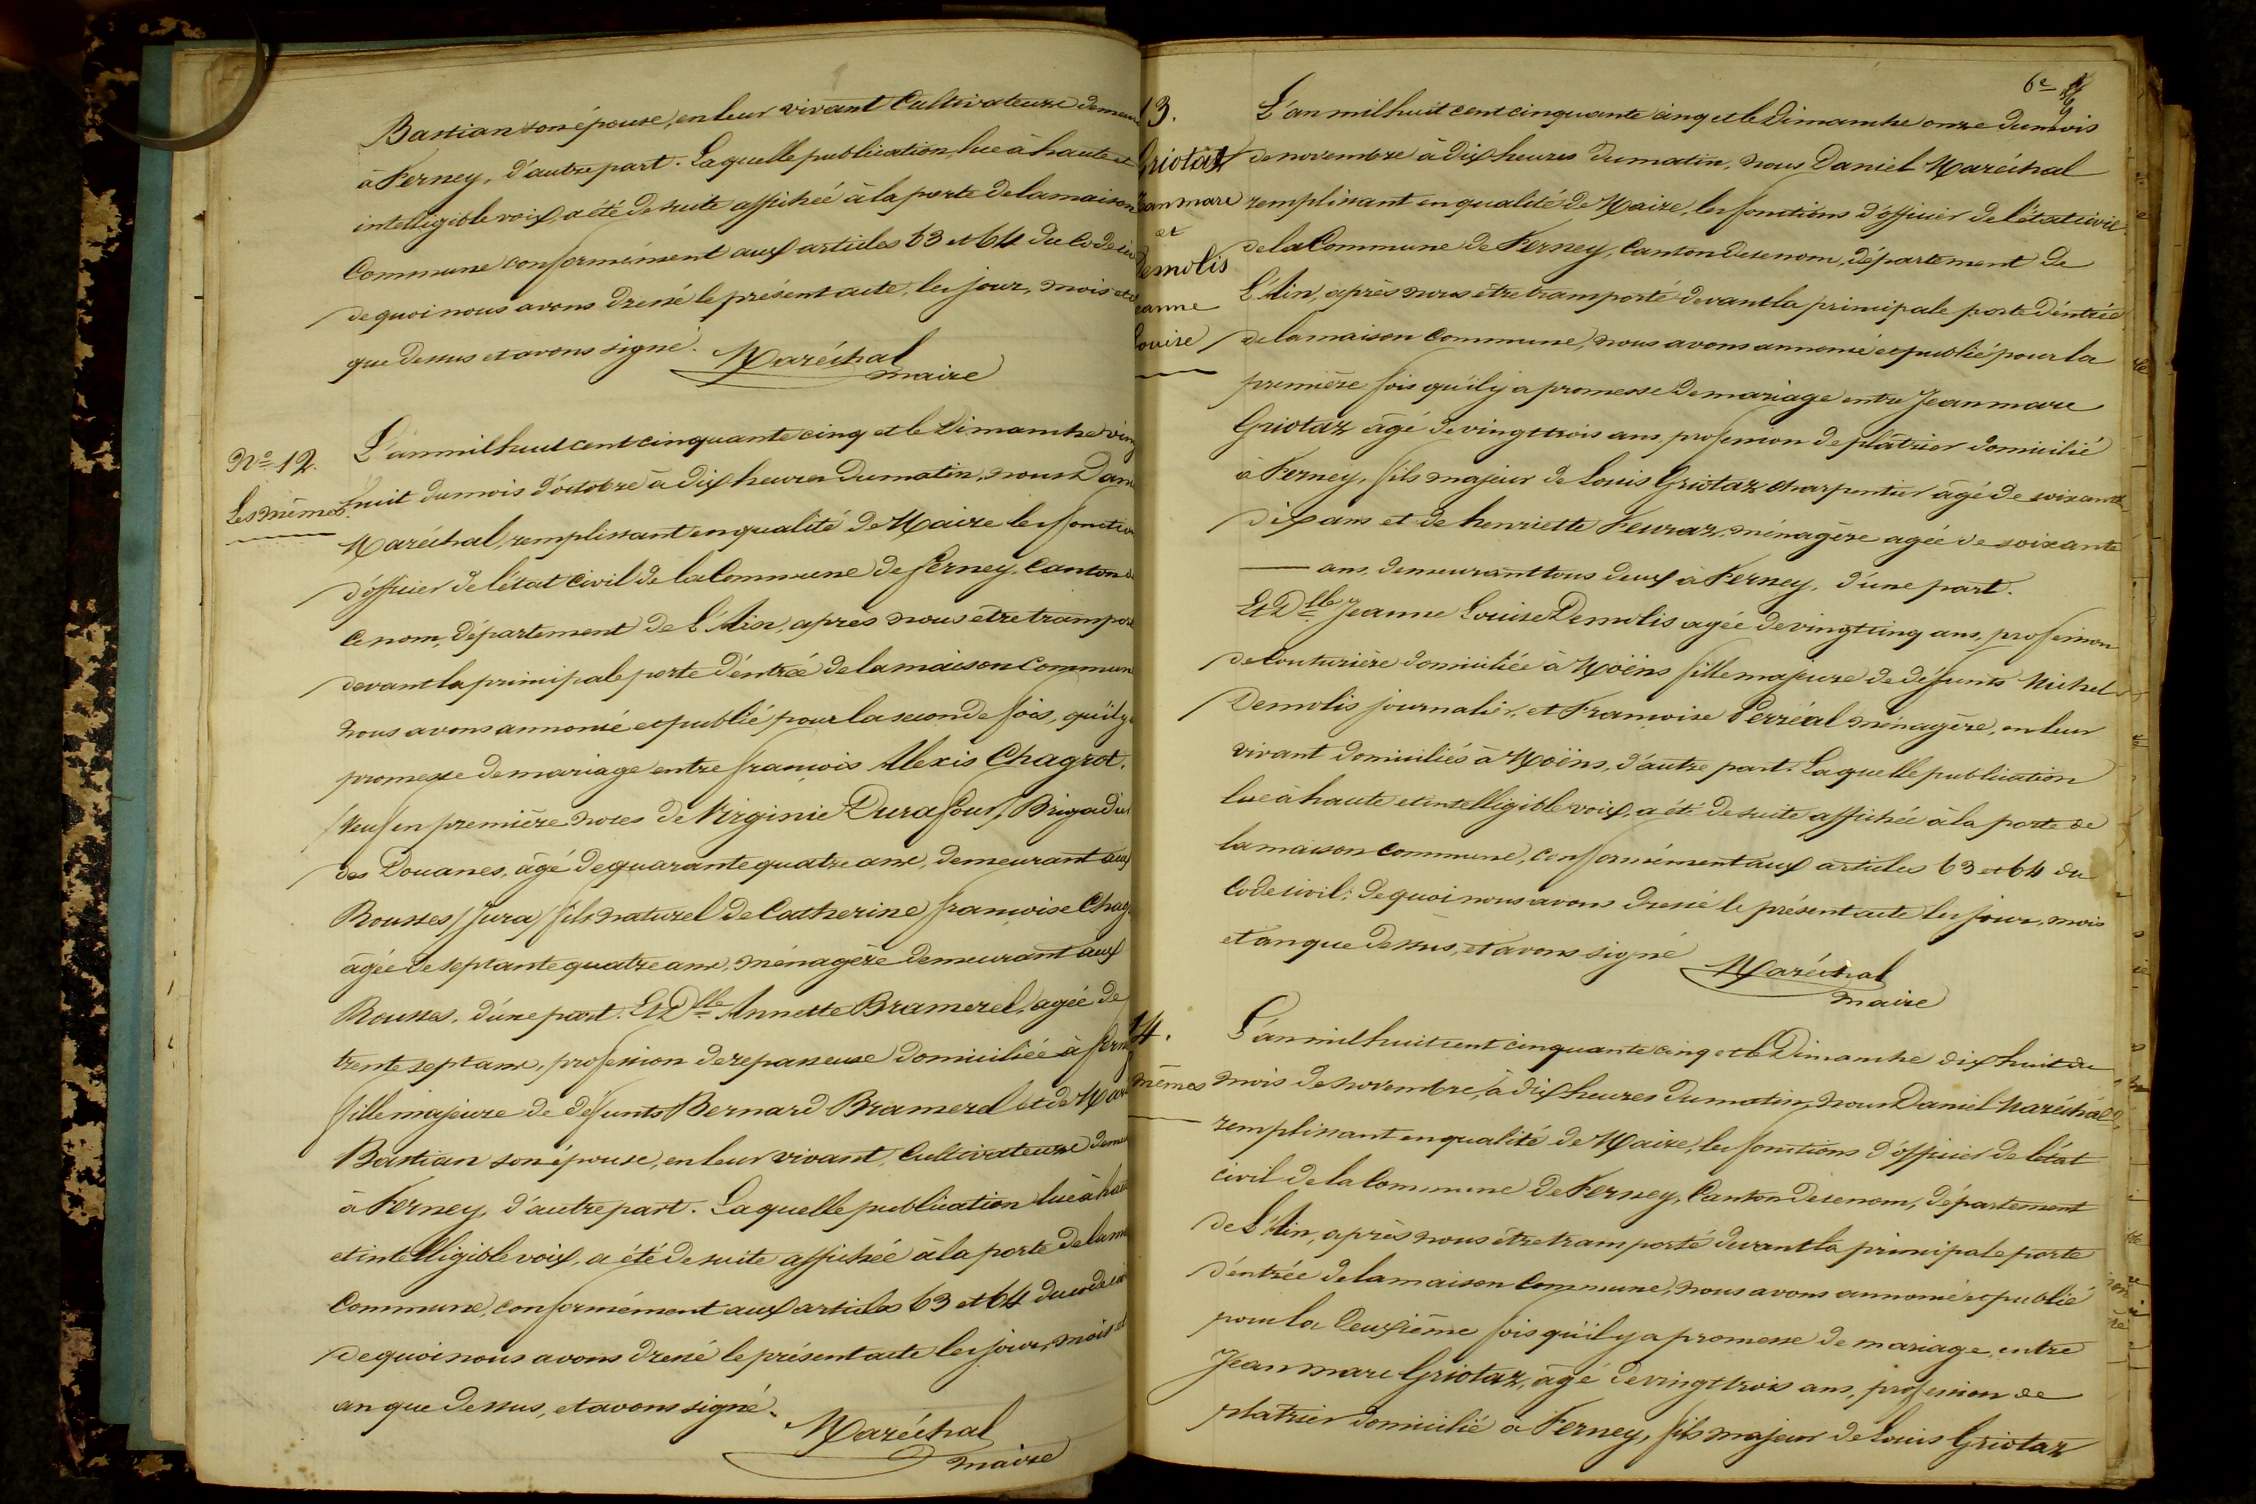 Bastian son épouse, en leur vivant Cultivateurs demeu
à Ferney, d'autre part. Laquelle publication, lue à haute et
intelligible voix, a été de suite affichée à la porte de la maison
Commune conformément aux articles 63 et 64 du Code civ
de quoi nous avons dressé le présent acte, les jour, mois et
que dessus et avons signé.
Maréchal
maire
No. 12.
Les mêmes.
L'an mil huit cent cinquante cinq et le Dimanche ving
huit du mois d'octobre à dix heures du matin, nous Dan
Maréchal, remplissant en qualité de Maire les fonction
d'officier de l'état civil de la Commune de ferney, Canton de
Ce nom, département de L'Ain, après nous être transpor
devant la principale porte d'entrée de la maison Commun
nous avons annoncé et publié pour la seconde fois, qu'il y
promesse de mariage entre françois Alexis Chagrot,
Veuf en première noces de Virginie Durafour, Brigadier
des Douanes, âgé de quarante quatre ans, demeurant aux
Rousses (Jura) fils naturel de Catherine françoise Chag
âgée de septante quatre ans, ménagère demeurant aux
Rousses, d'une part. Et Dlle Annette Bramerel, agée de
trente sept ans, profession de repasseuse domiciliée à fern
fille majeure de défunts Bernard Bramerel et de Mar
Bastian son épouse, en leur vivant, Cultivateurs dem
à Ferney, d'autre part. Laquelle publication lue à hau
et intelligible voix, a été de suite affichée à la porte de la m
Commune, conformément aux articles 63 et 64 du code civ
de quoi nous avons dressé le présent acte les jour, mois et
an que dessus, et avons signé.
Maréchal
maire
6e
13.
Griotaz
Jean marc
et
Demolis
eanne
Louise
L'an mil huit cent cinquante cinq et le Dimanche onze du mois
de novembre à dix heures du matin, nous Daniel Maréchal
remplissant en qualité de Maire, les fonctions d'officier de l'état civil
de la Commune de Ferney, Canton de ce nom, département de
L'Ain, après nous être transporté devant la principale porte d'entrée
de la maison Commune, nous avons annoncé et publié pour la
première fois qu'il y a promesse de mariage entre Jean marc
Griotaz âgé de vingt trois ans, profession de plâtrier domicilié
à Ferney, fils majeur de Louis Griotaz charpentier âgé de soixante
dix ans et de henriette Feuraz, ménagère agée de soixante
ans, demeurant tous deux à Ferney, d'une part.
Et Dlle Jeanne Louise Demolis agée de vingt cinq ans, profession
de Couturière domiciliée à Moëns fille majeure de défunts Michel
Demolis journalier, et Françoise Perréal ménagère, en leur
vivant domiciliés à Moëns, d'autre part. Laquelle publication
lue à haute et intelligible voix, a été de suite affichée à la porte de
la maison commune, conformément aux articles 63 et 64 du
Code civil; de quoi nous avons dressé le présent acte les jour, mois
et an que dessus, et avons signé
Maréchal
maire
14.
mêmes
L'an mil huit cent cinquante cinq et le Dimanche dix huit du
mois de novembre, à dix heures du matin, nous Daniel Maréchal
remplissant en qualité de Maire, les fonctions d'officier de l'état
civil de la Commune de Ferney, Canton de ce nom, département
de L'Ain, après nous être transporté devant la principale porte
d'entrée de la maison Commune, nous avons annoncé et publié
pour la deuxième fois qu'il y a promesse de mariage, entre
Jean marc Griotaz, âgé de vingt trois ans, profession de
platrier domicilié à Ferney, fils majeur de Louis Griotaz